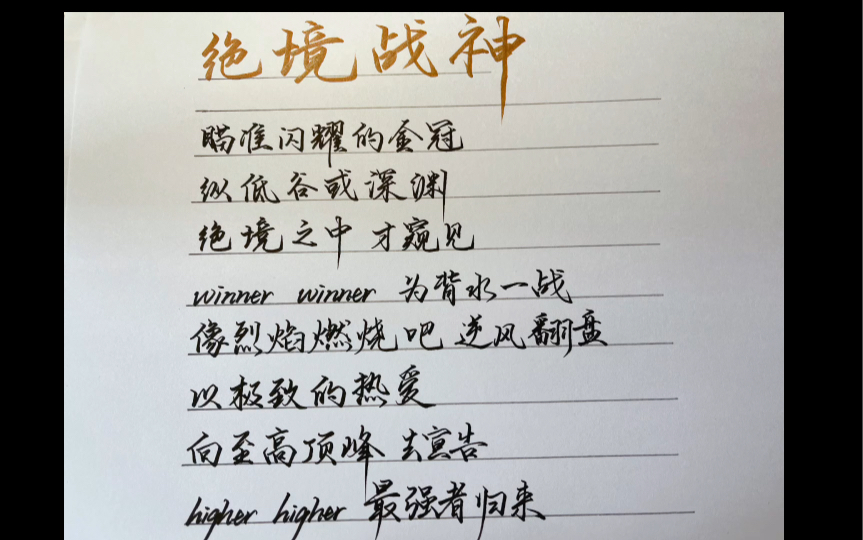 绝境战神
瞄准闪耀的金冠
纵低谷或深渊
绝境之中 才窥见
winner winner 为背水一战
像烈焰燃烧吧 逆风翻盘
以极致的热爱
向至高顶峰 去宣告
higher higher 最强者归来